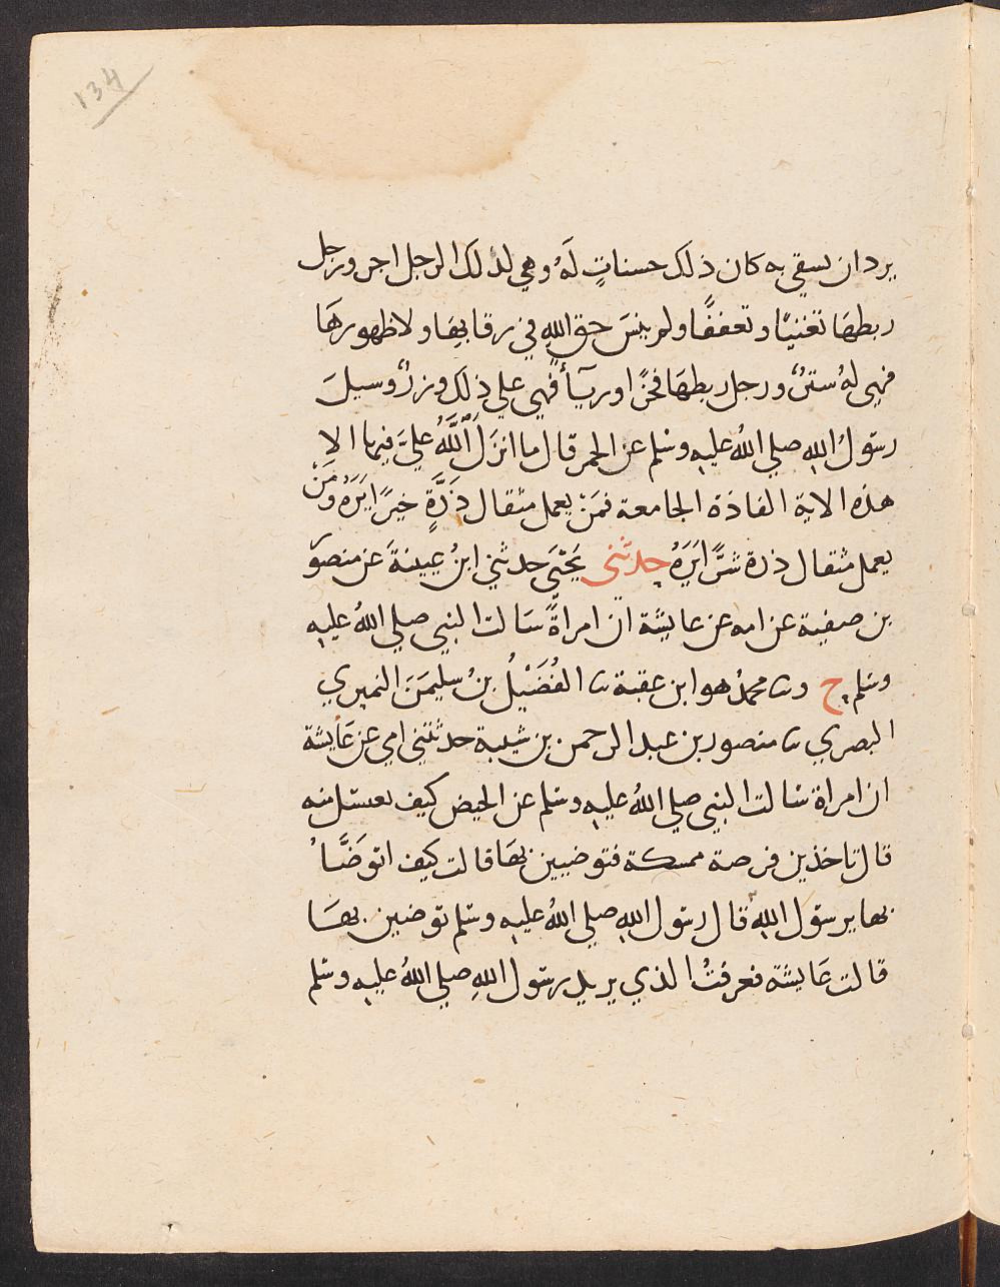 134
يرد ان يسقي به كان ذلك حسناتٍ لَهُ وهي لذلك الرجل اجر ورجل
ربطهَا تغنيًا وتعففًا ولم ينسَ حق اللهِ في رقابها ولا ظهورهَا
فهي لهُ سترٌ ورجل ربطهَا فخرًا وريآءً فهي علي ذلك وزرٌ وسيلَ
رسولُ اللهِ صلي اللهُ عليهِ وسلم عن الحمر قال ما انزَلَ اللَّهُ عليَّ فيها الا
هذه الاية الفاذة الجامعة فمَنْ يعمل مثقال ذَرَّةٍ خيرًا يَرَهُ وَمَنْ
يعمل مثقال ذرة شرًّا يَرَهُ حدثني يَحْيَى حدثني ابنُ عيينةَ عن منصور
بن صفية عن امه عن عايشة ان امراةً سَالت النبي صلي اللهُ عليهِ
وسلم ح وثنا محمدٌ هو ابن عقبة ثنا الفُضَيْلُ بنُ سليمَنَ النميري
البصري ثنا منصور بن عبد الرحمن بن شيبة حدثتني امي عن عَايشة
ان امراة سالت النبي صلي اللهُ عليهِ وسلم عن الحيض كيف تغتسل منه
قال تاخذين فرصة ممسكة فتوضيين بهَا قالت كيف اتوَضَّأُ
بها يرسول اللهِ قال رسول اللهِ صلي اللهُ عليهِ وسلم توضين بهَا
قالت عَايشة فعرفتُ الذي يريد رسول اللهِ صلي اللهُ عليهِ وسلم